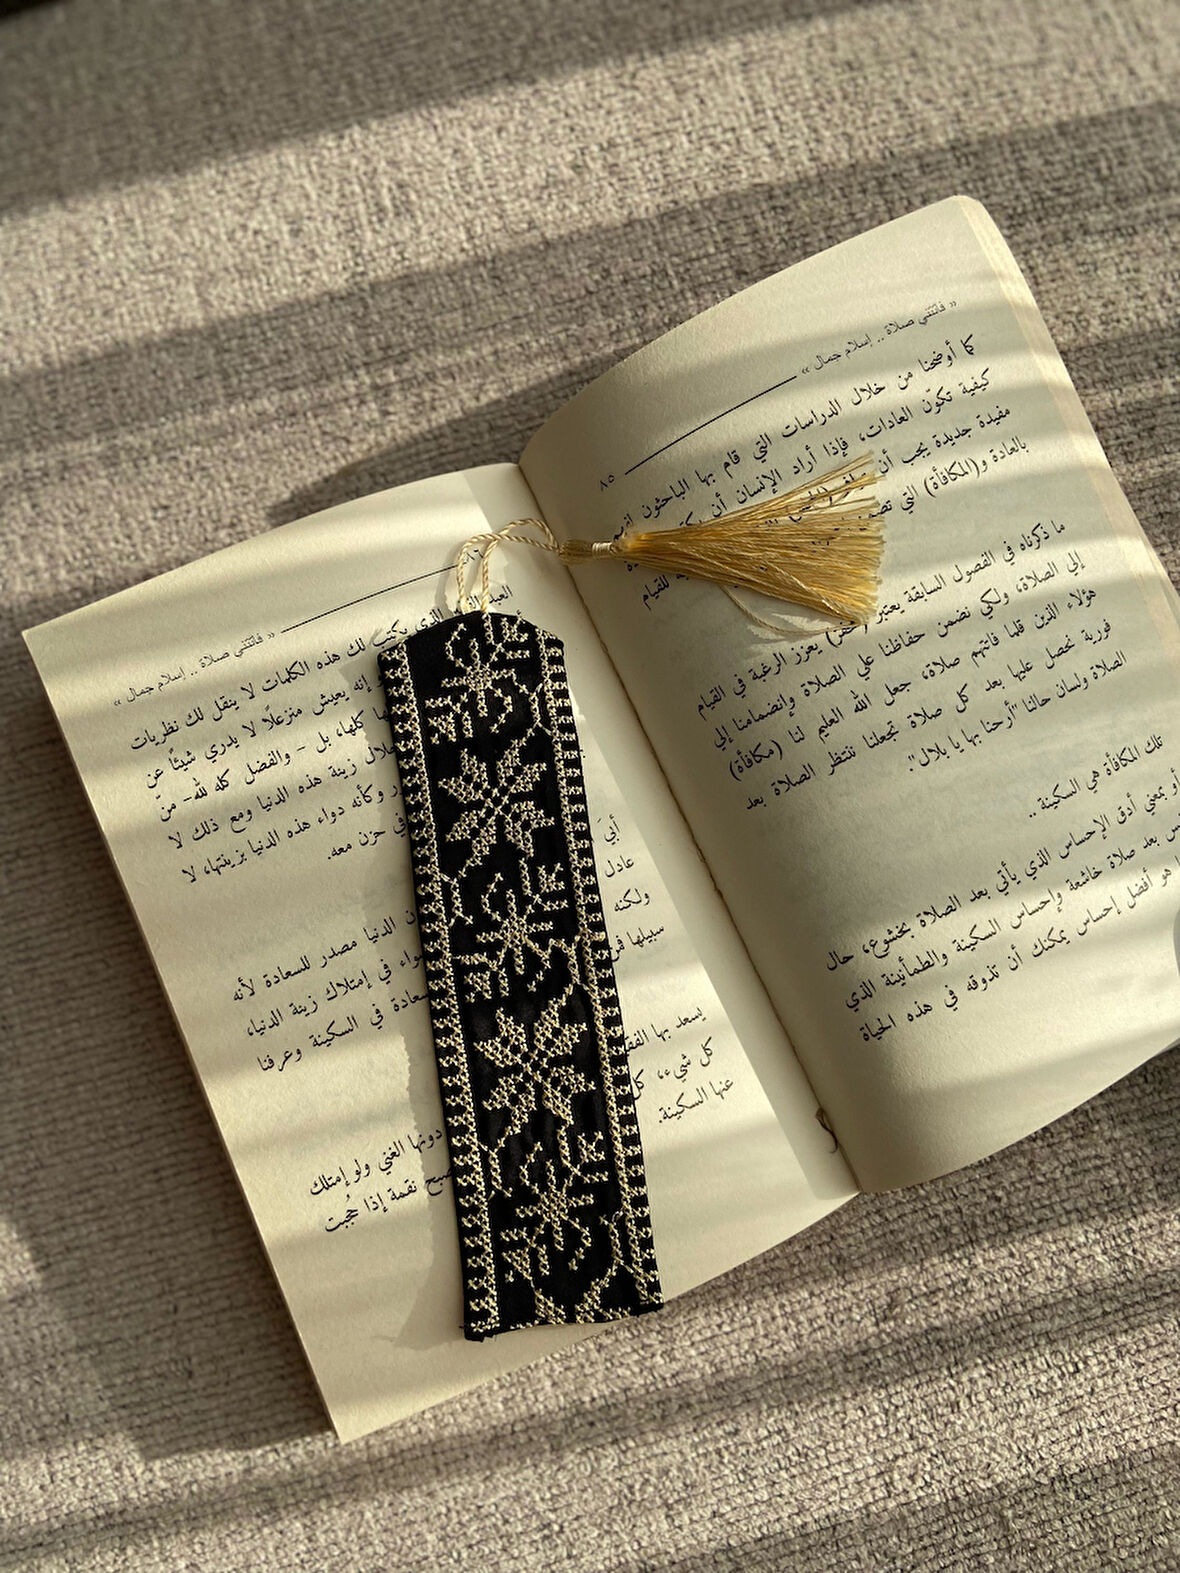 « فاتتني صلاة .. إسلام جمال »
٨٥
كما أوضحنا من خلال الدراسات التي قام بها الباحثون
كيفية تكوّن العادات، فإذا أراد الإنسان أن
مفيدة جديدة يجب أن
بالعادة و(المكافأة) التي
للقيام
ما ذكرناه في الفصول السابقة يعتبر (حفز) يعزز الرغبة في القيام
إلي الصلاة، ولكي نضمن حفاظنا علي الصلاة وإنضمامنا إلي
هؤلاء الذين قلما فاتتهم صلاة، جعل الله العليم لنا (مكافأة)
فورية نحصل عليها بعد كل صلاة تجعلنا ننتظر الصلاة بعد
الصلاة ولسان حالنا "أرحنا بها يا بلال".
تلك المكافأة هي السكينة..
أو بمعني أدق الإحساس الذي يأتي بعد الصلاة بخشوع، حال
بعد صلاة خاشعة وإحساس السكينة والطمأنينة الذي
هو أفضل إحساس يمكنك أن تذوقه في هذه الحياة
« فاتتني صلاة .. إسلام جمال »
٨٦
العبد
الذي يكتب لك هذه الكلمات لا ينقل لك نظريات
إنه يعيش منزعلًا لا يدري شيئًا عن
كلها، بل - والفضل كله لله- منّ
زينة هذه الدنيا ومع ذلك لا
وكأنه دواء هذه الدنيا بزينتها، لا
في حزن معه.
أبيَ
عادل
ولكنه
سبيلها
الدنيا مصدر للسعادة لأنه
في إمتلاك زينة الدنيا،
في السكينة وعرفنا
يسعد بها
دونها الغني ولو إمتلك
كل شيء،
نقمة إذا حُجبت
عنها السكينة.